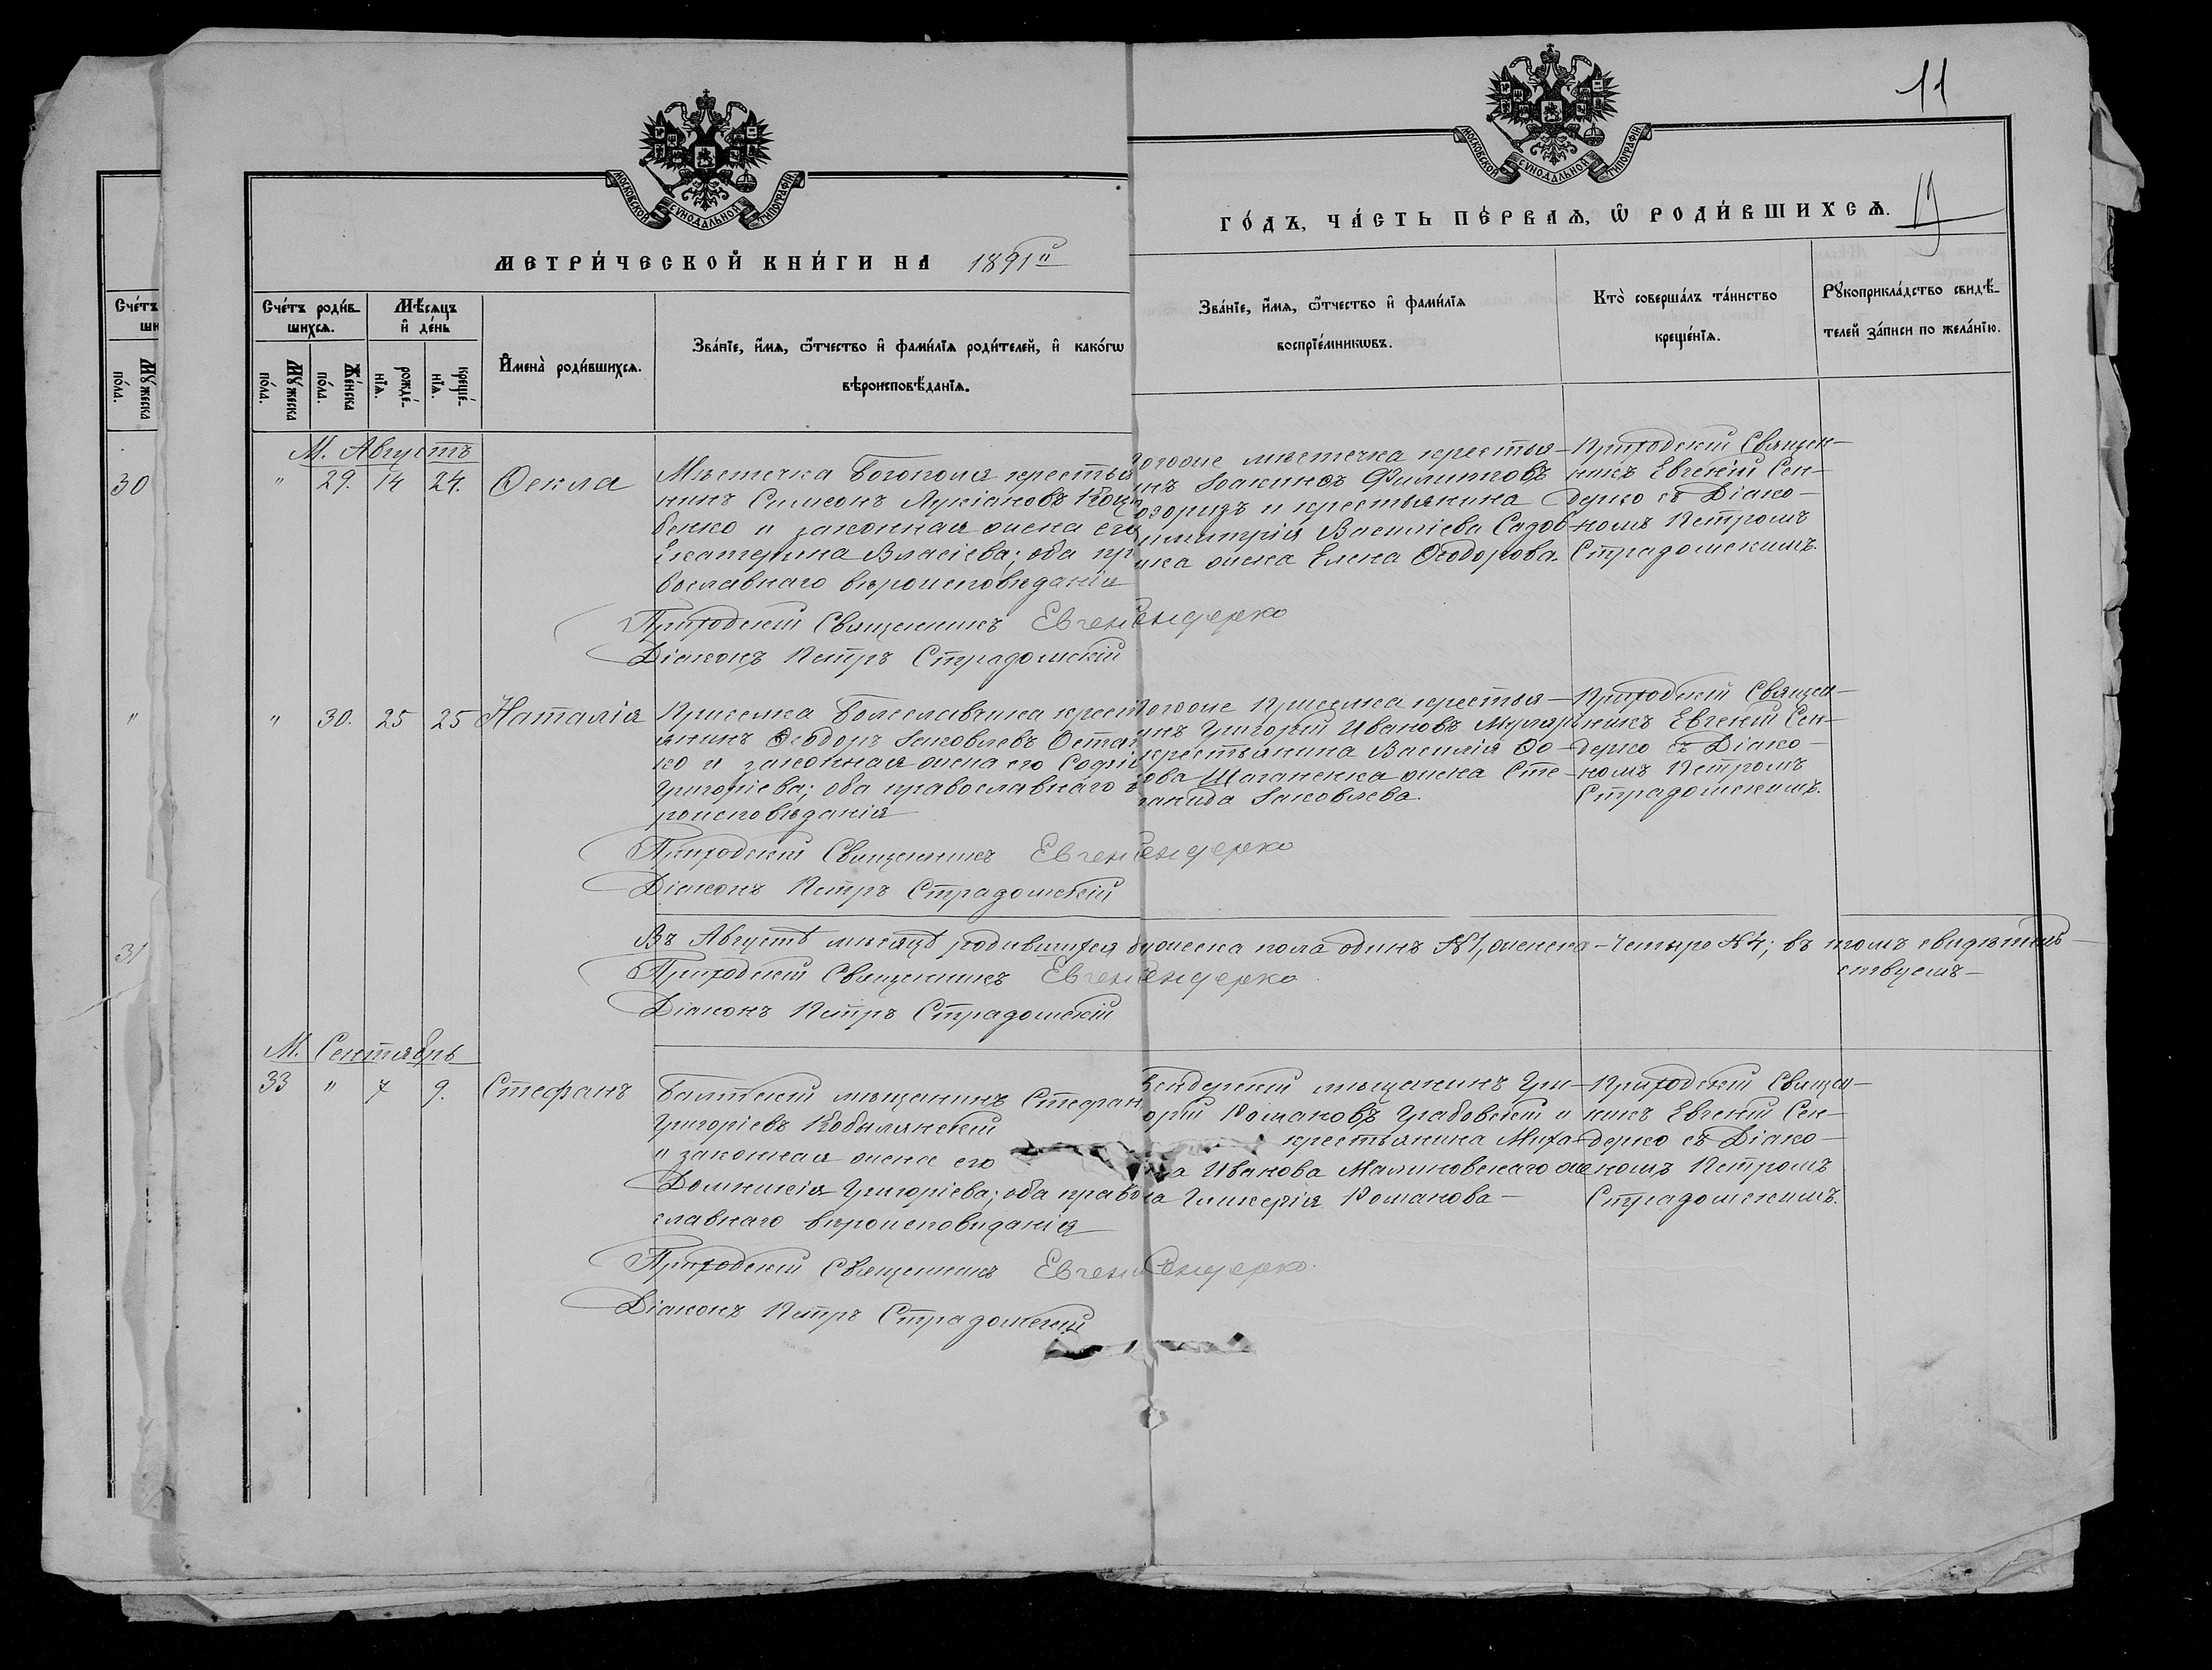 11
МОСКОВСКОЙ СѴНОДАЛЬНОЙ ТИПОГРАФІИ
МОСКОВСКОЙ СѴНОДАЛЬНОЙ ТИПОГРАФІИ
МЕТРИ́ЧЕСКОЙ КНИ́ГИ НА 1891й
ГО́ДЪ, ЧА́СТЬ ПЕ́РВАѦ, Ѿ РОДИ́ВШИХСѦ.
Сче́тъ
ши
Мꙋ́жеска
по́ла.
Сче́тъ роди́в-
шихсѧ.
Мꙋ́жеска
по́ла.
Же́нска
по́ла.
Мѣ́сѧцъ
и҆ де́нь
рожде́-
нїѧ.
креще́-
нїѧ.
И҆мена̀ роди́вшихсѧ.
Зва́нїе, и҆́мѧ, ѻ҆́тчество и҆ фами́лїѧ роди́телей, и҆ како́гѡ
вѣроисповѣ́данїѧ.
Зва́нїе, и҆́мѧ, ѻ҆́тчество и҆ фами́лїѧ
воспрїе́мникѡвъ.
Кто̀ соверша́лъ та́инство
креще́нїѧ.
Рꙋкоприкла́дство свидѣ́-
телей за́писи по жела́нїю.
30
"
31
М. Августъ
" 29. 14 24. Ѳекла
Мѣстечка Богополя крестья
нинъ Симеонъ Лукіановъ
бенко и законная жена его
Екатерина Власіева; оба пр
вославнаго вѣроисповѣданія
мѣстечка крестья-
нъ Іоакимъ Филипповъ
и крестьянина
имитрія Василіева Садов
ика жена Елена Ѳеодорова.
Приходскій Священ-
никъ Евгеній Сен-
дерко съ Діако-
номъ Петромъ
Страдомскимъ.
Приходскій Священникъ Евгеній Сендерко
Діаконъ Петръ Страдомскій
" 30. 25 25 Наталія
Приселка Болеславчика крест
янинъ Ѳеодоръ Іаковлевъ
ко и законная жена его Софія
Григоріева; оба православнаго в
роисповѣданія
приселка крестья-
инъ Григорій Ивановъ
крестьянина Василія Ѳо-
ова жена Сте-
анида Іаковлева.
Приходскій Священ-
никъ Евгеній Сен-
дерко съ Діако-
номъ Петромъ
Страдомскимъ.
Приходскій Священникъ Евгеній Сендерко
Діаконъ Петръ Страдомскій
Въ Августѣ мѣсяцѣ родившихся мужеска пола одинъ №1, женска - четыре №4; въ томъ свидѣтель-
ствуемъ -
Приходскій Священникъ Евгеній Сендерко
Діаконъ Петръ Страдомскій
М. Сентябрь
33 " 7 9. Стефанъ
Балтскій мѣщанинъ Стефан
Григоріевъ Кобылянскій
и законная жена его
Домникія Григоріева; оба право
славнаго вѣроисповѣданія
Бендерскій мѣщанинъ Гри-
орій Романовъ Грабовскій и
крестьянина Миха-
ла Иванова Малиновскаго же
на Гликерія Романова -
Приходскій Священ-
никъ Евгеній Сен-
дерко съ Діако-
номъ Петромъ
Страдомскимъ.
Приходскій Священникъ Евгеній Сендерко.
Діаконъ Петръ Страдомскій